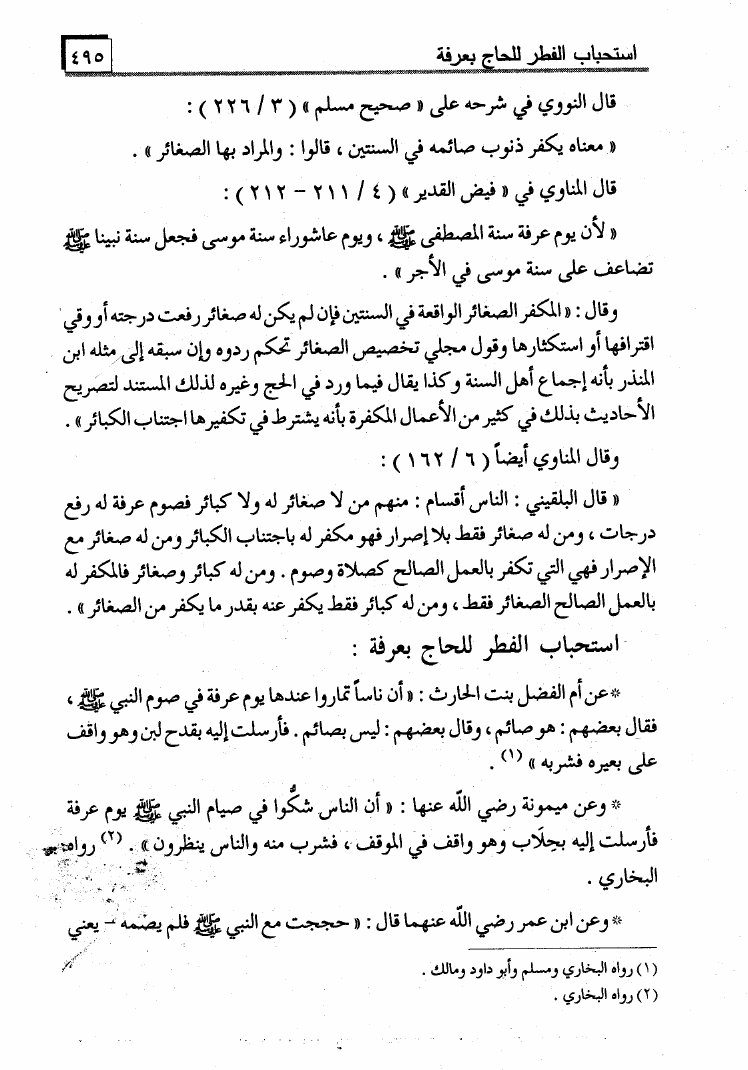 استحباب الفطر للحاج بعرفة
٤٩٥
قال النووي في شرحه على « صحيح مسلم » ( ٣ / ٢٢٦ ) :
« معناه يكفر ذنوب صائمه في السنتين ، قالوا : والمراد بها الصغائر » .
قال المناوي في « فيض القدير » ( ٤ / ٢١١ – ٢١٢ ) :
« لأن يوم عرفة سنة المصطفى ﷺ ، ويوم عاشوراء سنة موسى فجعل سنة نبينا ﷺ
تضاعف على سنة موسى في الأجر » .
وقال : « المكفر الصغائر الواقعة في السنتين فإن لم يكن له صغائر رفعت درجته أو وقي
اقترافها أو استكثارها وقول مجلي تخصيص الصغائر تحكم ردوه وإن سبقه إلى مثله ابن
المنذر بأنه إجماع أهل السنة وكذا يقال فيما ورد في الحج وغيره لذلك المستند لتصريح
الأحاديث بذلك في كثير من الأعمال المكفرة بأنه يشترط في تكفيرها اجتناب الكبائر » .
وقال المناوي أيضاً ( ٦ / ١٦٢ ) :
« قال البلقيني : الناس أقسام : منهم من لا صغائر له ولا كبائر فصوم عرفة له رفع
درجات ، ومن له صغائر فقط بلا إصرار فهو مكفر له باجتناب الكبائر ومن له صغائر مع
الإصرار فهي التي تكفر بالعمل الصالح كصلاة وصوم . ومن له كبائر وصغائر فالمكفر له
بالعمل الصالح الصغائر فقط ، ومن له كبائر فقط يكفر عنه بقدر ما يكفر من الصغائر » .
استحباب الفطر للحاج بعرفة :
* عن أم الفضل بنت الحارث : « أن ناساً تماروا عندها يوم عرفة في صوم النبي ﷺ ،
فقال بعضهم : هو صائم ، وقال بعضهم : ليس بصائم . فأرسلت إليه بقدح لبن وهو واقف
على بعيره فشربه » (١) .
* وعن ميمونة رضي اللّه عنها : « أن الناس شكُّوا في صيام النبي ﷺ يوم عرفة
فأرسلت إليه بحِلَاب وهو واقف في الموقف ، فشرب منه والناس ينظرون » . (٢) رواه
البخاري .
* وعن ابن عمر رضي اللّه عنهما قال : « حججت مع النبي ﷺ فلم يصمه – يعني
(١) رواه البخاري ومسلم وأبو داود ومالك .
(٢) رواه البخاري .